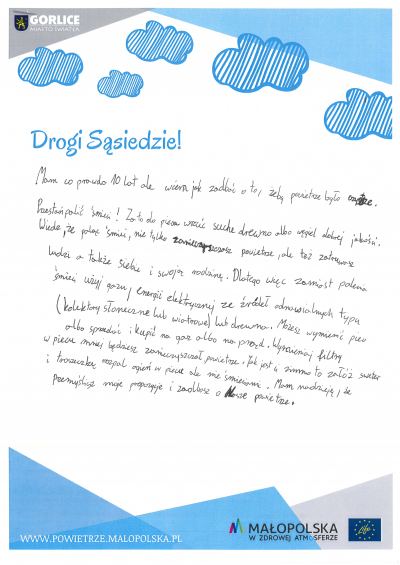 GORLICE
MIASTO ŚWIATŁA
Drogi Sąsiedzie!
Mam co prawda 10 lat ale wiem jak zadbać o to, żeby powietrze było
Przestań palić śmieci! Za to do pieca wrzuć suche drewno albo węgiel dobrej jakości.
Wiedz, że paląc śmieci, nie tylko powietrze, ale też zatruwasz
ludzi a także siebie i swoją rodzinę. Dlatego więc zamiast palenia
śmieci użyj gazu, energii elektrycznej ze źródeł odnawialnych typu
(kolektory słoneczne lub wiatrowe) lub drewna. Możesz wymienić piec
albo sprzedać i kupić na gaz albo na prąd. filtry
w piecu mniej będziesz zanieczyszczał powietrze. Jak jest zimno to załóż sweter
i troszeczkę rozpal ogień w piecu ale nie śmieciami. Mam nadzieję, że
przemyślisz moje propozycje i zadbasz o Nasze powietrze.
WWW.POWIETRZE.MALOPOLSKA.PL
MAŁOPOLSKA
W ZDROWEJ ATMOSFERZE
life